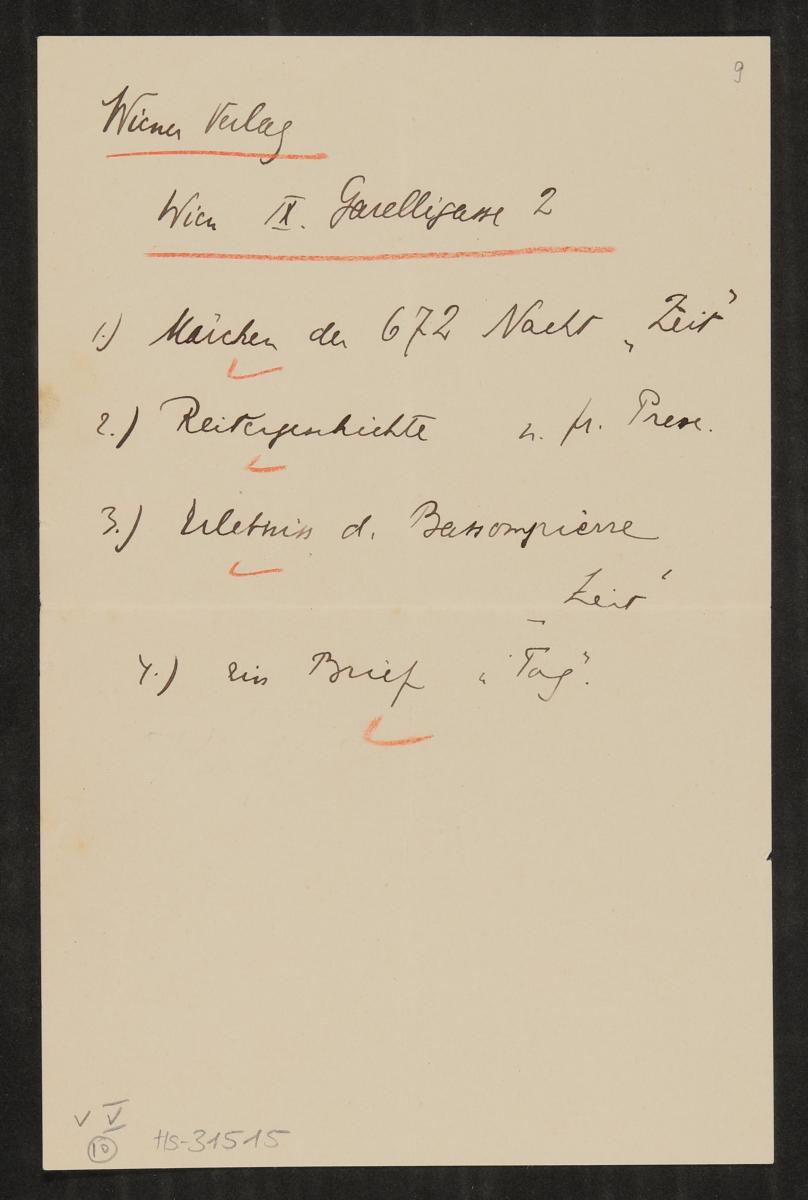 9
Wiener Verlag
Wien IX. Garelligasse 2
1.) Märchen der 672 Nacht „Zeit”
2.) Reitergeschichte n. fr. Presse.
3.) Erlebniss d. Bassompierre
„Zeit”
4.) ein Brief „Tag”.
V V
10 HS-31515